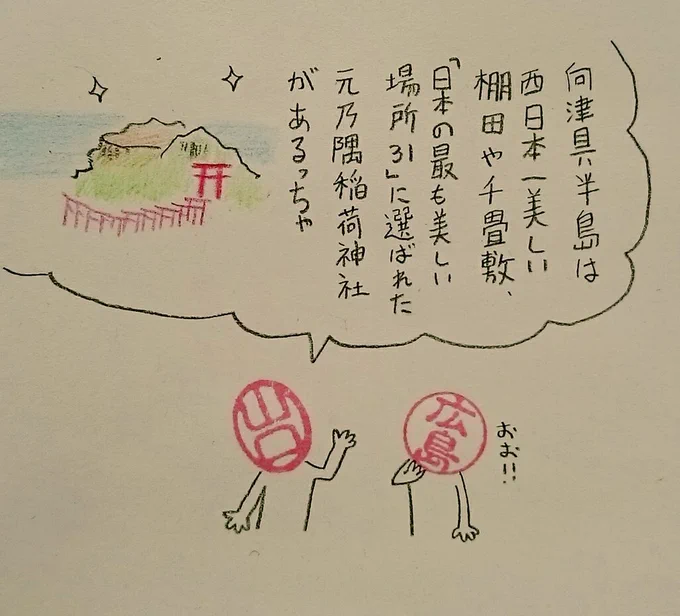 向津具半島は
西日本一美しい
棚田や千畳敷、
「日本の最も美しい
場所31」に選ばれた
元乃隅稲荷神社
があるっちゃ
山口
広島
おお!!